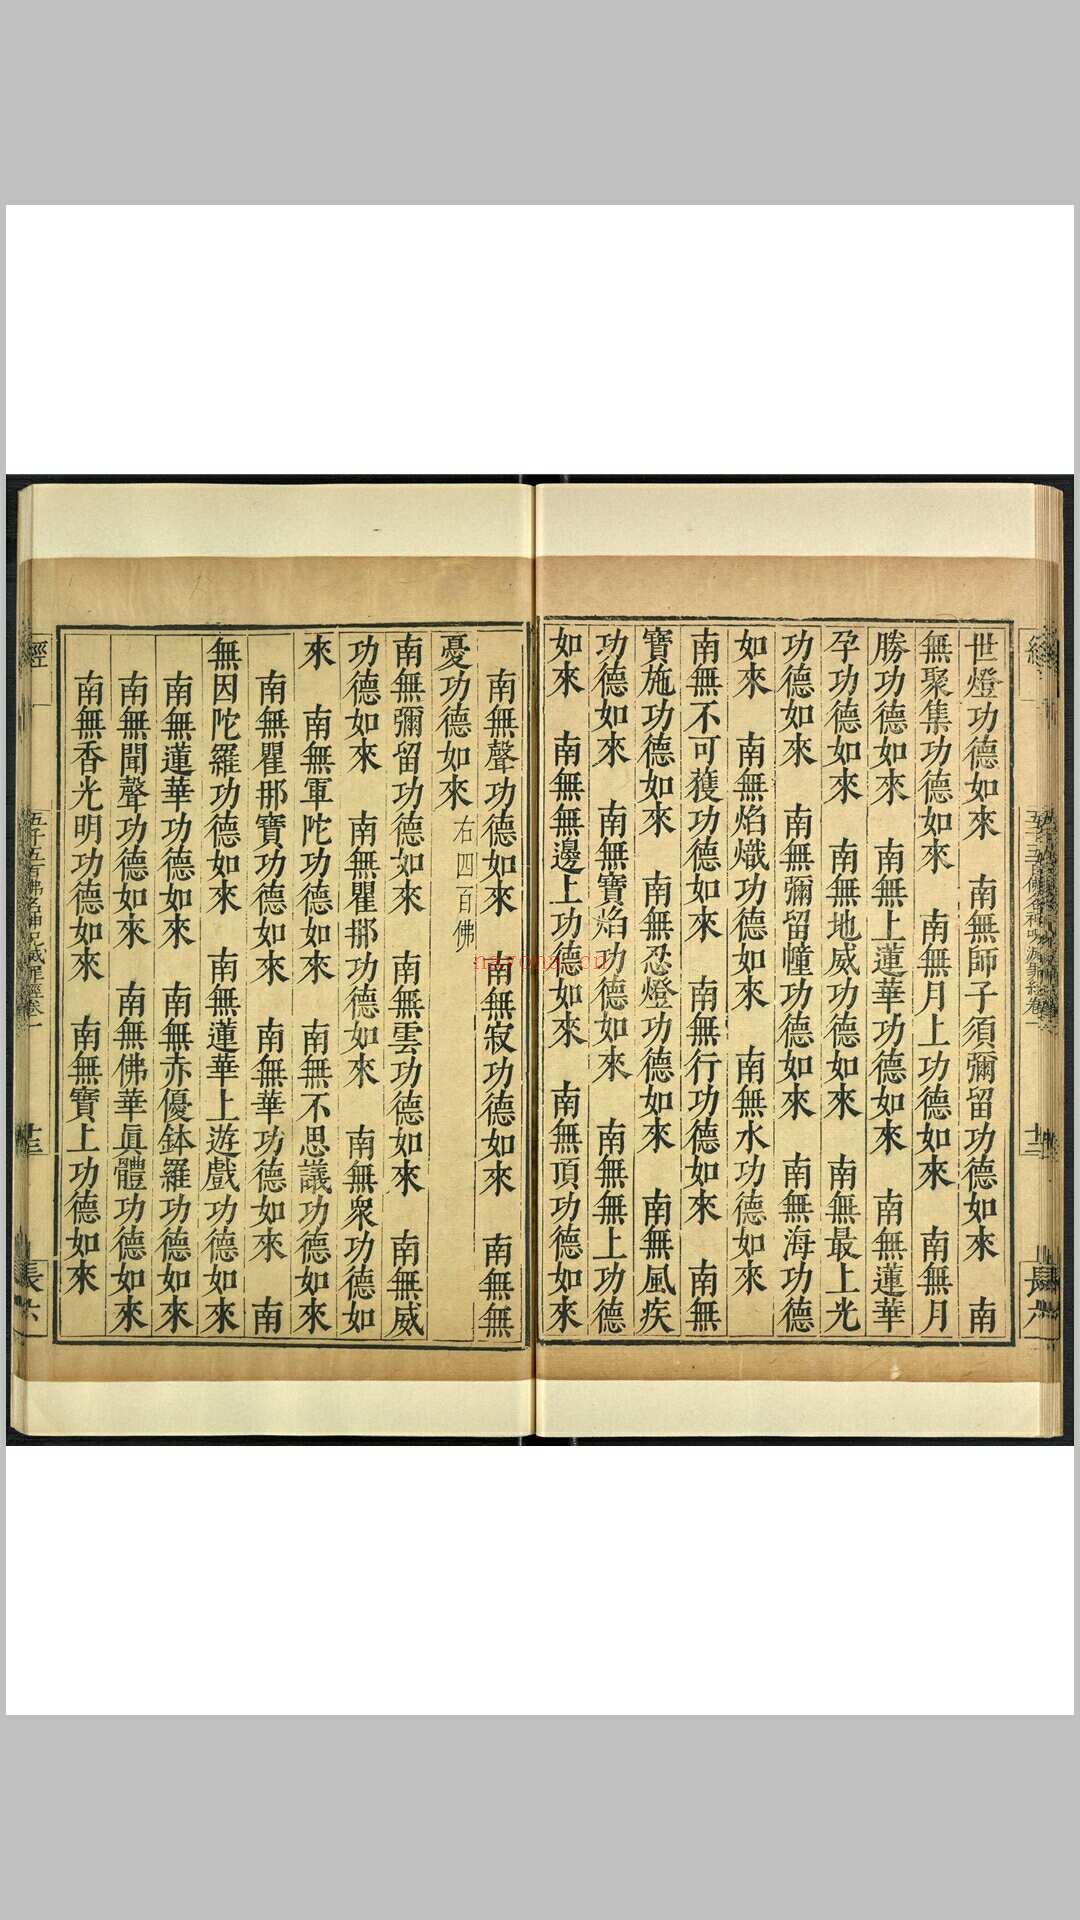 世燈功德如來　南無師子須彌留功德如來　南
無聚集功德如來　南無月上功德如來　南無月
勝功德如來　南無上蓮華功德如來　南無蓮華
孕功德如來　南無地威功德如來　南無最上光
功德如來　南無彌留幢功德如來　南無海功德
如來　南無焰熾功德如來　南無水功德如來
南無不可獲功德如來　南無行功德如來　南無
寶施功德如來　南無忍燈功德如來　南無風疾
功德如來　南無寶焰功德如來　南無無上功德
如來　南無無邊上功德如來　南無頂功德如來
南無聲功德如來　南無寂功德如來　南無無
憂功德如來　右四百佛
南無彌留功德如來　南無雲功德如來　南無威
功德如來　南無瞿那功德如來　南無衆功德如
來　南無軍陀功德如來　南無不思議功德如來
南無瞿那寶功德如來　南無華功德如來　南
無因陀羅功德如來　南無蓮華上遊戲功德如來
南無蓮華功德如來　南無赤優鉢羅功德如來
南無聞聲功德如來　南無佛華眞體功德如來
南無香光明功德如來　南無寶上功德如來
經
五千五百佛名神呪滅罪經卷一
長六
nayona.cn